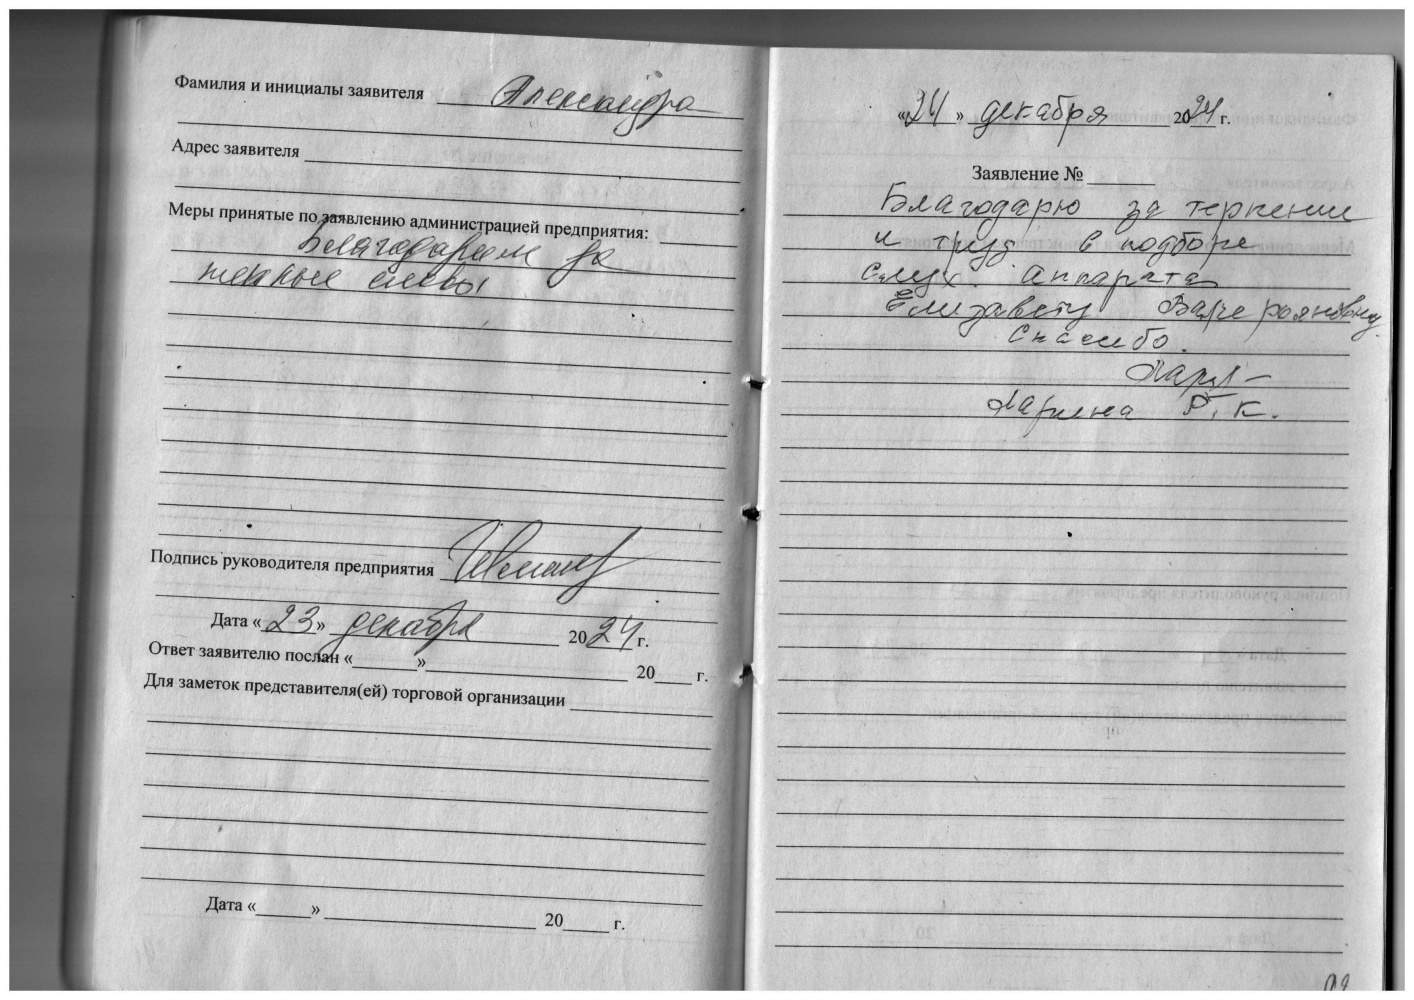 Фамилия и инициалы заявителя Александра
Адрес заявителя
Меры принятые по заявлению администрацией предприятия:
Благодарим за
теплые слова
Подпись руководителя предприятия
Дата «23» декабря 2024 г.
Ответ заявителю послан « » 20 г.
Для заметок представителя(ей) торговой организации
Дата « » 20 г.
«24» декабря 2024 г.
Заявление №
Благодарю за терпение
и труд в подборе
слух. аппарата
Елизавету
Спасибо.
Ларкина Р. К.